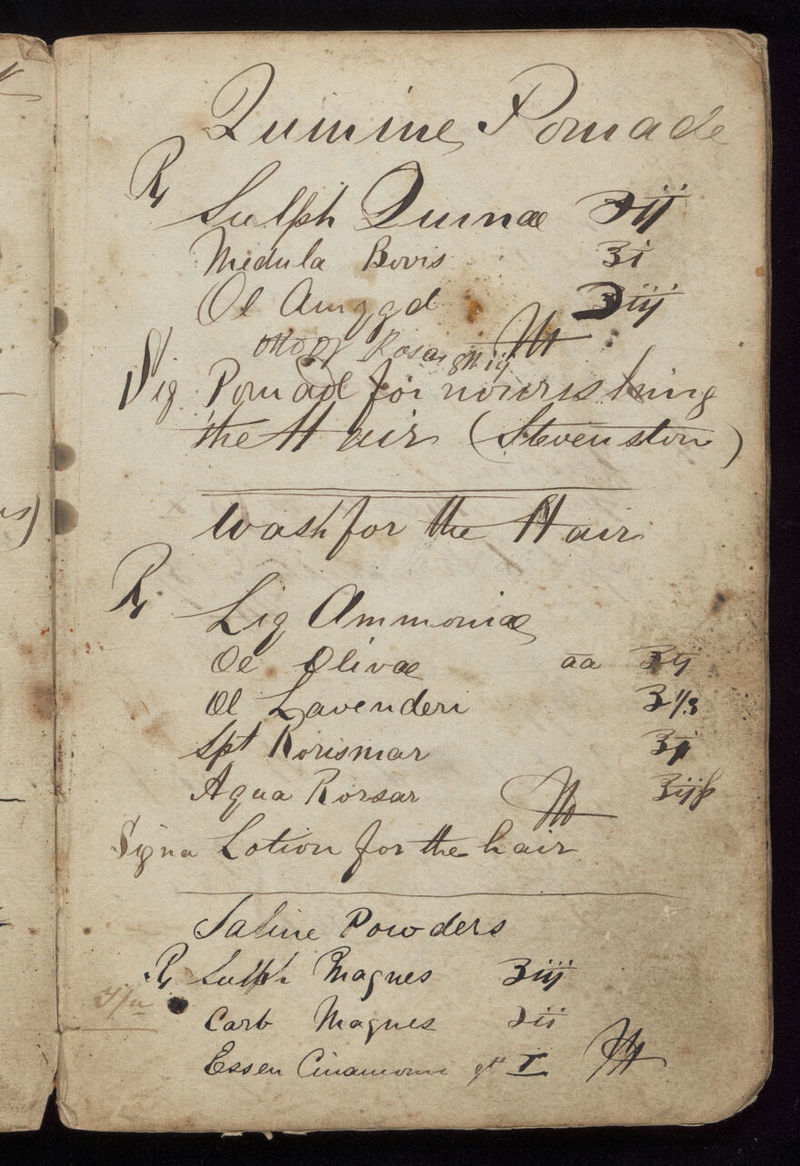 Quinine Pomade
℞ Sulph Quinae ʒij
Medula Bovis ℥i
Ol Amygd ʒiij
otto of Rosa gtt ij M
Sig Pomad for nourishing
the Hair (Stevenston)
Wash for the Hair
℞
Liq Ammoniae
Ol Olivae aa ʒij
Ol Lavenderi
Spt Rorismar ʒj
Aqua Rorsar M ℥ijß
Signa Lotion for the hair
Saline Powders
℞ Sulph Magnes ʒiij
Carb Magnes ʒii
Essen Cinamomi gtt X M